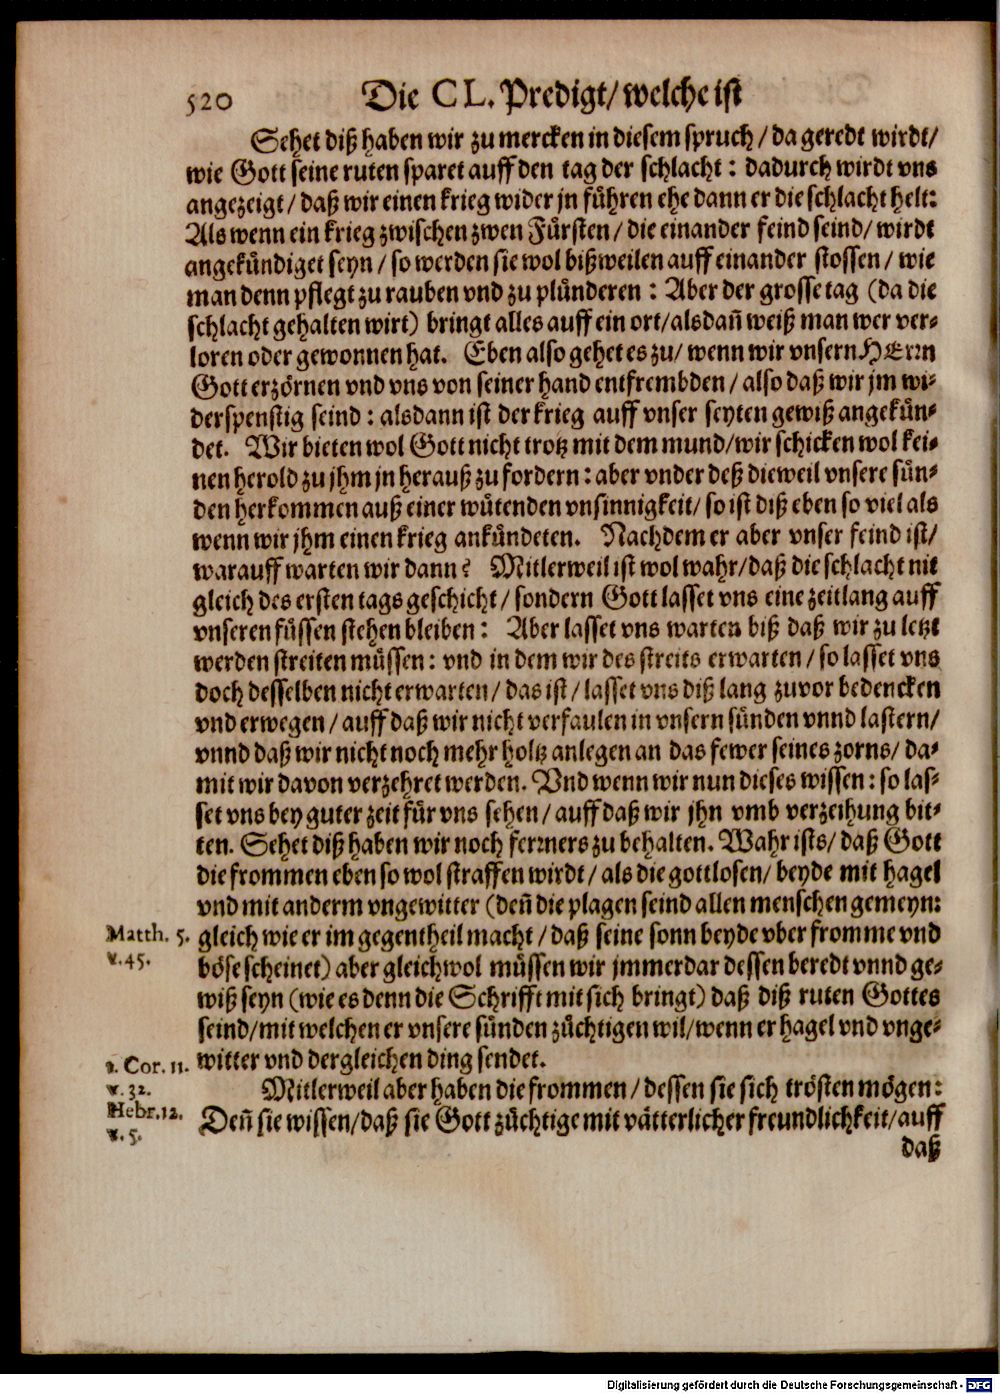 520 Die CL. Predigt/ welche ist
Sehet diß haben wir zu mercken in diesem spruch / da geredt wirdt/
wie Gott seine ruten sparet auff den tag der schlacht : dadurch wirdt vns
angezeigt / daß wir einen krieg wider jn führen ehe dann er die schlacht helt:
Als wenn ein krieg zwischen zwen Fürsten / die einander feind seind/ wirdt
angekündiget seyn / so werden sie wol bißweilen auff einander stossen / wie
man denn pflegt zu rauben vnd zu plünderen : Aber der grosse tag (da die
schlacht gehalten wirt) bringt alles auff ein ort/alsdañ weiß man wer ver-
loren oder gewonnen hat. Eben also gehet es zu/ wenn wir vnsern HErrn
Gott erzörnen vnd vns von seiner hand entfrembden / also daß wir jm wi-
derspenstig seind : alsdann ist der krieg auff vnser seyten gewiß angekün-
det. Wir bieten wol Gott nicht trotz mit dem mund/wir schicken wol kei-
nen herold zu jhm jn herauß zu fordern : aber vnder deß dieweil vnsere sün-
den herkommen auß einer wütenden vnsinnigkeit/ so ist diß eben so viel als
wenn wir jhm einen krieg ankündeten. Nachdem er aber vnser feind ist/
warauff warten wir dann? Mitlerweil ist wol wahr/daß die schlacht nit
gleich des ersten tags geschicht / sondern Gott lasset vns eine zeitlang auff
vnseren füssen stehen bleiben : Aber lasset vns warten biß daß wir zu letzt
werden streiten müssen : vnd in dem wir des streits erwarten / so lasset vns
doch desselben nicht erwarten / das ist / lasset vns diß lang zuvor bedencken
vnd erwegen / auff daß wir nicht verfaulen in vnsern sünden vnnd lastern/
vnnd daß wir nicht noch mehr holtz anlegen an das fewer seines zorns/ da-
mit wir davon verzehret werden. Vnd wenn wir nun dieses wissen : so las-
set vns bey guter zeit für vns sehen / auff daß wir jhn vmb verzeihung bit-
ten. Sehet diß haben wir noch ferrners zu behalten. Wahr ists/ daß Gott
die frommen eben so wol straffen wirdt / als die gottlosen/ beyde mit hagel
vnd mit anderm vngewitter (deñ die plagen seind allen menschen gemeyn:
Matth. 5. gleich wie er im gegentheil macht / daß seine sonn beyde vber fromme vnd
v. 45. böse scheinet) aber gleichwol müssen wir jmmerdar dessen beredt vnnd ge-
wiß seyn (wie es denn die Schrifft mit sich bringt) daß diß ruten Gottes
seind/mit welchen er vnsere sünden züchtigen wil/wenn er hagel vnd vnge-
1. Cor. 11. witter vnd dergleichen ding sendet.
v. 32. Mitlerweil aber haben die frommen / dessen sie sich trösten mögen:
Hebr. 12. Deñ sie wissen/daß sie Gott züchtige mit vätterlicher freundlichkeit/auff
v. 5.
daß
Digitalisierung gefördert durch die Deutsche Forschungsgemeinschaft - DFG